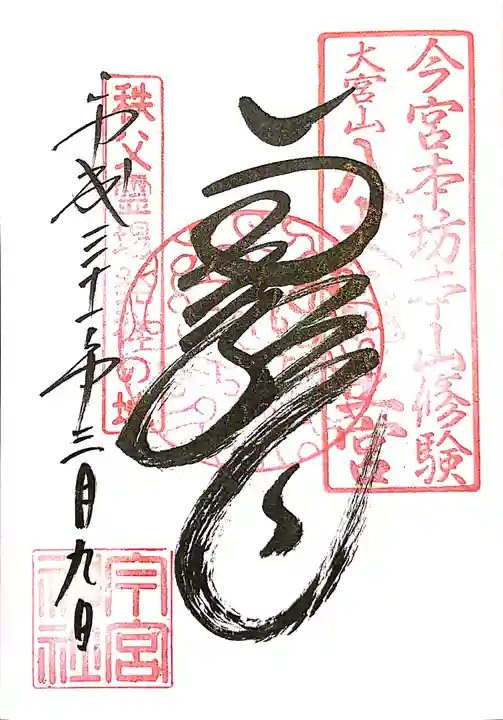 今宮本坊寺山修験
大宮山八大
秩父霊場発祥の地
平成三十一年三月九日
今宮
神社